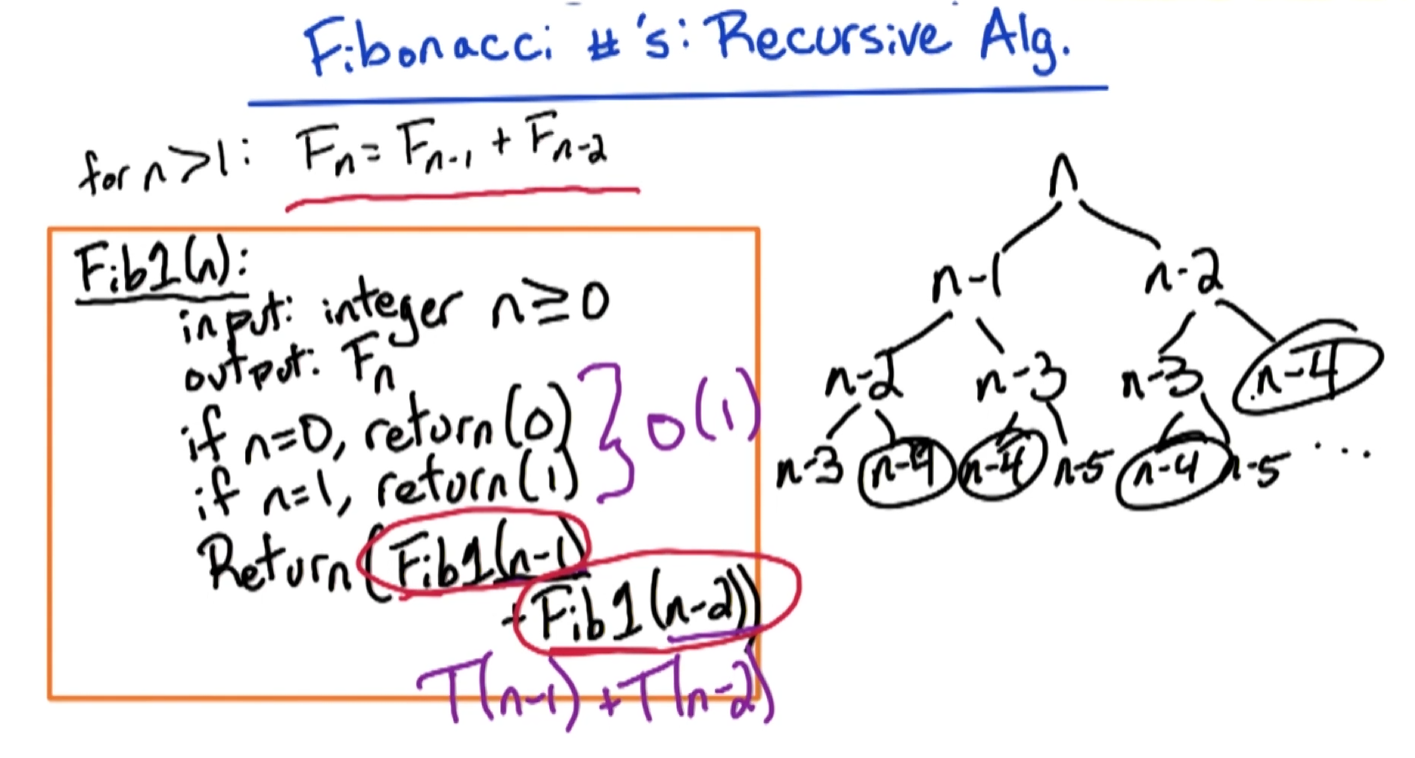 Fibonacci #'s: Recursive Alg.
for n>1: Fₙ = Fₙ₋₁ + Fₙ₋₂
Fib1(n):
input: integer n≥0
output: Fₙ
if n=0, return(0)
if n=1, return(1)
} O(1)
Return(Fib1(n-1)
+Fib1(n-2))
T(n-1)+T(n-2)
n
n-1 n-2
n-2 n-3 n-3 n-4
n-3 n-4 n-4 n-5 n-4 n-5 ...